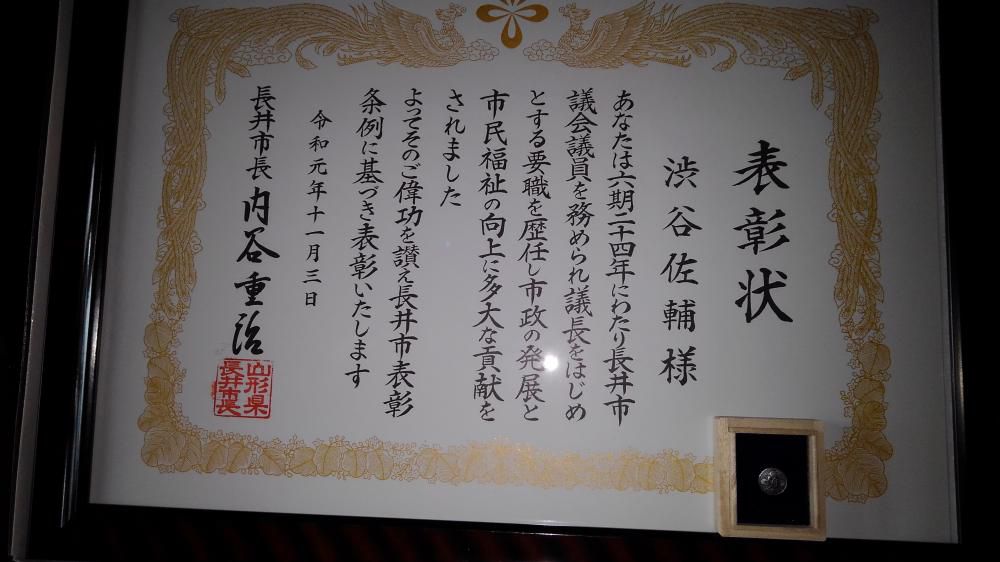 表彰状
渋谷佐輔様
あなたは六期二十四年にわたり長井市
議会議員を務められ議長をはじめ
とする要職を歴任し市政の発展と
市民福祉の向上に多大な貢献を
されました
よってそのご偉功を讃え長井市表彰
条例に基づき表彰いたします
令和元年十一月三日
長井市長 内谷重治
山形県
長井市長